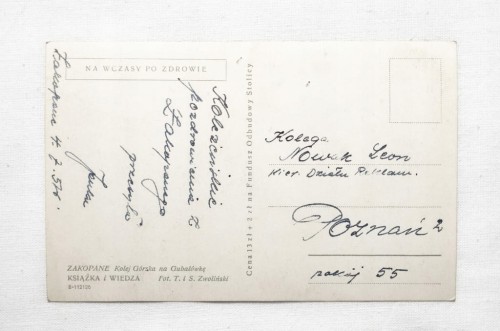 NA WCZASY PO ZDROWIE
Koleżeńskie
pozdrowienia z
Zakopanego
przesyła
Zakopane 4.2.51r.
ZAKOPANE Kolej Górska na Gubałówkę
KSIĄŻKA i WIEDZA Fot. T. i S. Zwoliński
Cena 13 zł + 2 zł na Fundusz Odbudowy Stolicy
Kolega
Nowak Leon
Kier. Działu Reklam.
Poznań 2
pokój 55